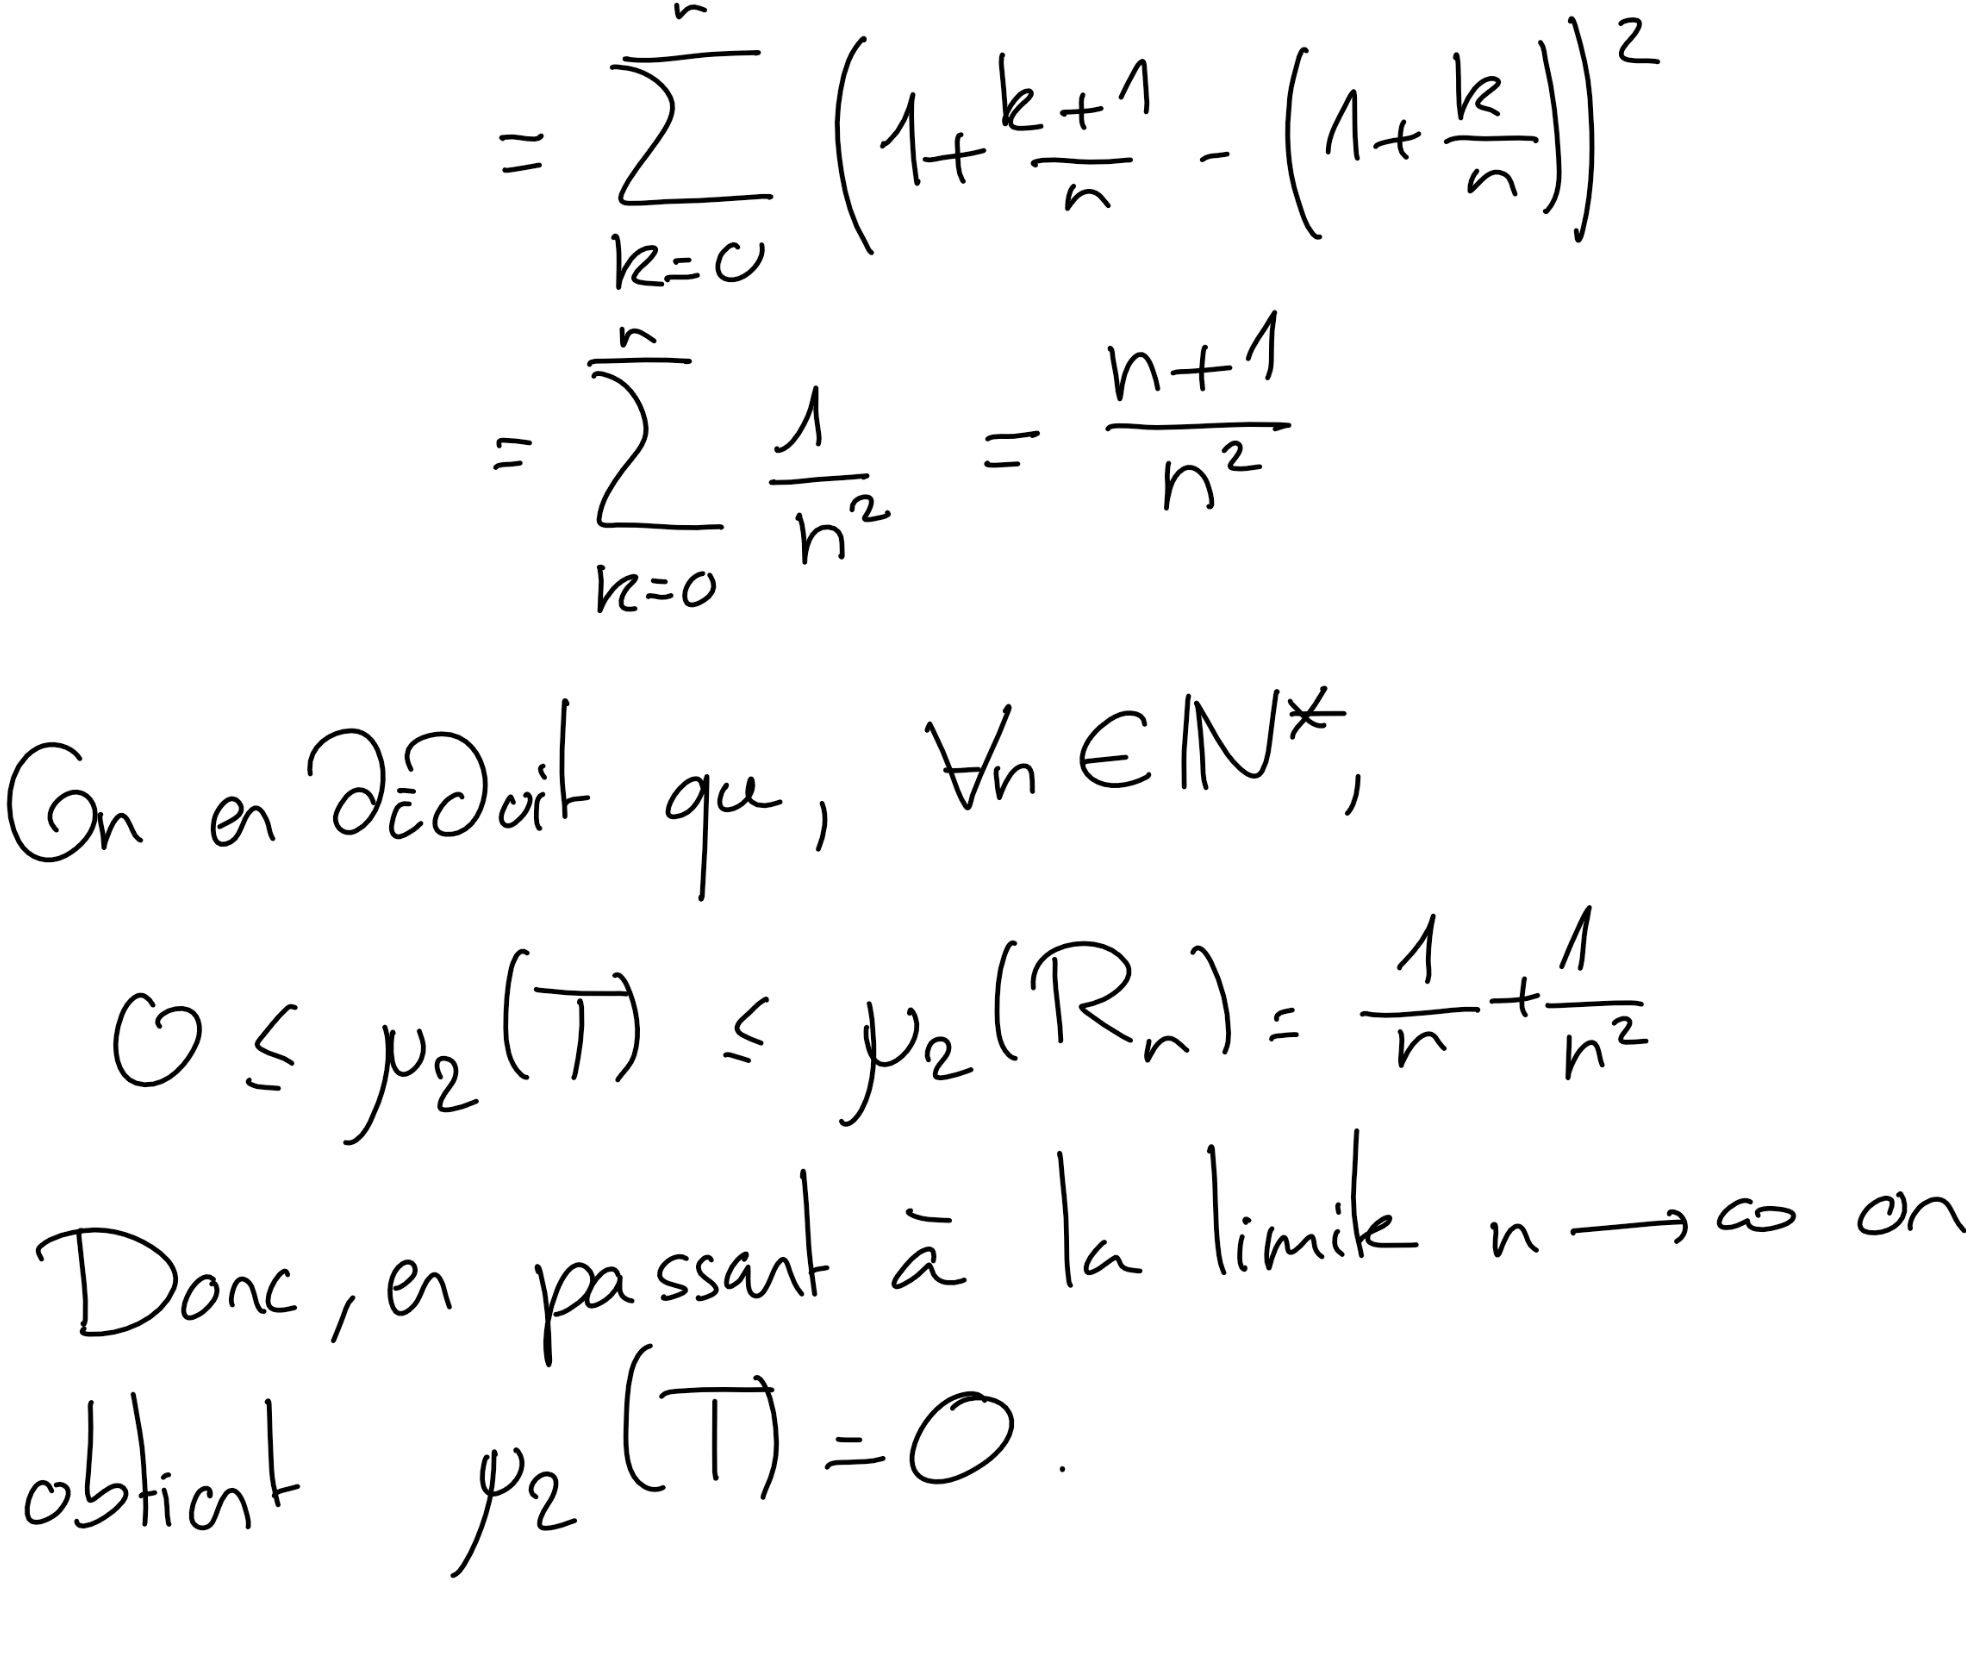 $= \sum_{k=0}^{n} \left(1+\frac{k+1}{n} - \left(1+\frac{k}{n}\right)\right)^2$
$= \sum_{k=0}^{n} \frac{1}{n^2} = \frac{n+1}{n^2}$
On en déduit que, $\forall n \in \mathbb{N}^*$,
$0 \leq \mu_2(T) \leq \mu_2(R_n) = \frac{1}{n} + \frac{1}{n^2}$
Donc, en passant à la limite $n \longrightarrow \infty$ on
obtient $\mu_2(T) = 0$.